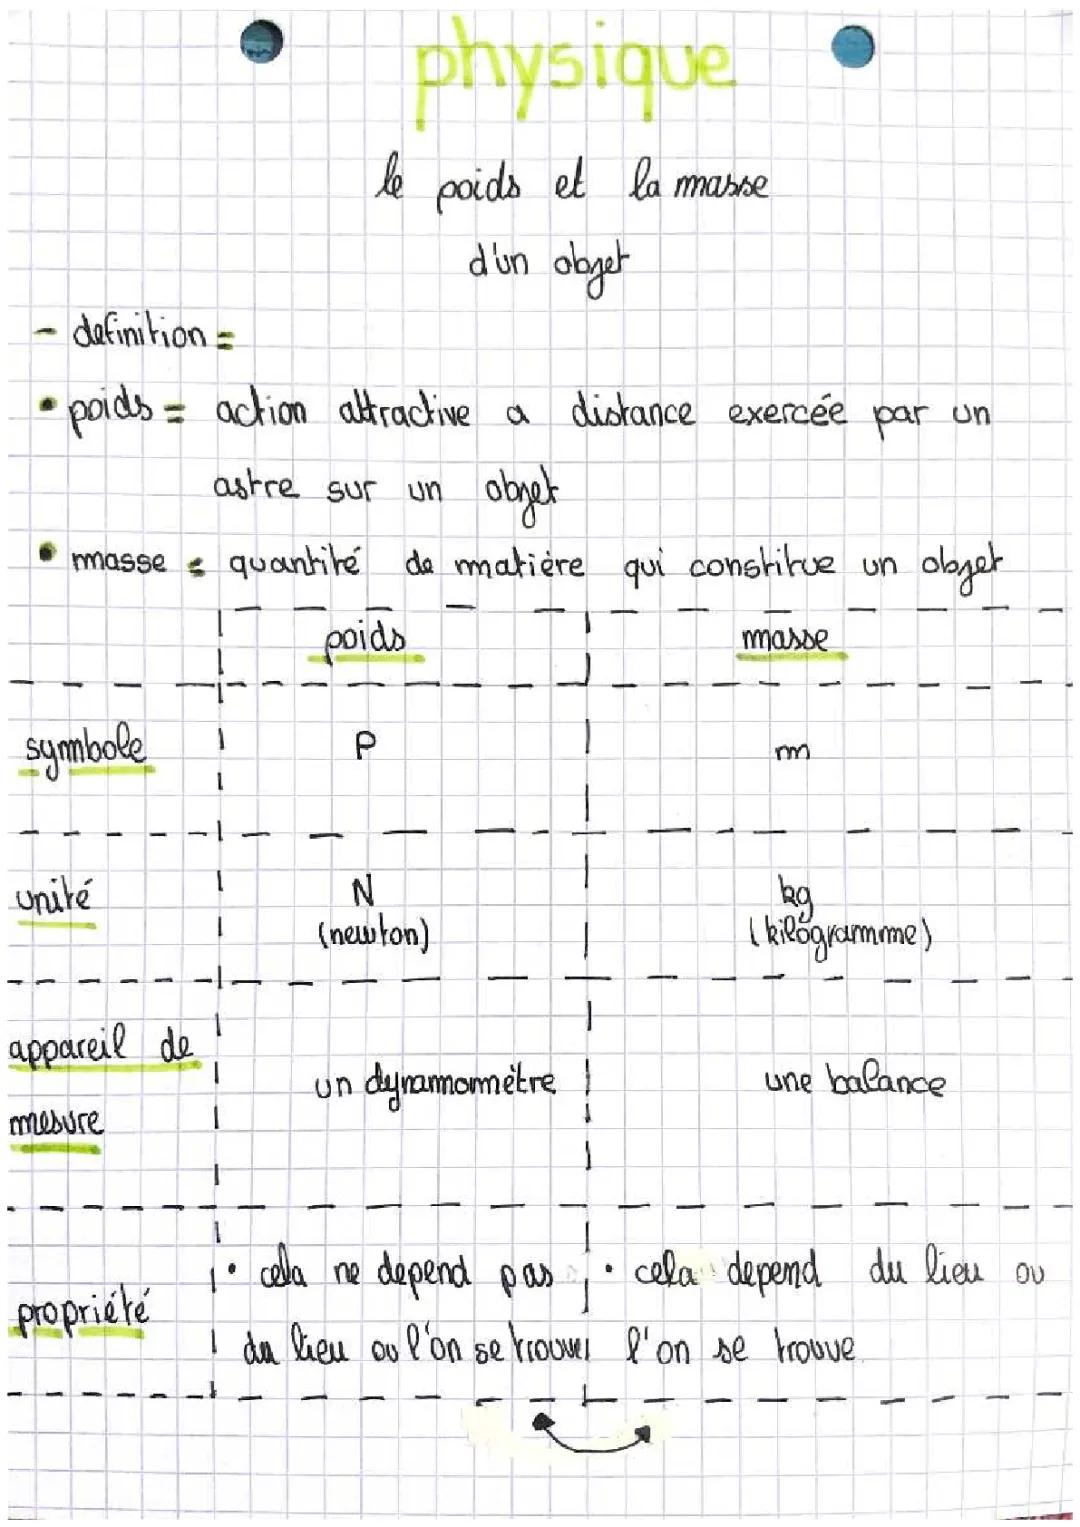 physique
le poids et la masse
d'un objet
- definition =
• poids = action attractive a distance exercée par un
astre sur un objet
• masse = quantité de matière qui constitue un objet
poids masse
symbole P m
unité N kg
(newton) (kilogramme)
appareil de
mesure un dynamomètre une balance
propriété • cela ne depend pas • cela depend du lieu ou
du lieu ou l'on se trouve l'on se trouve